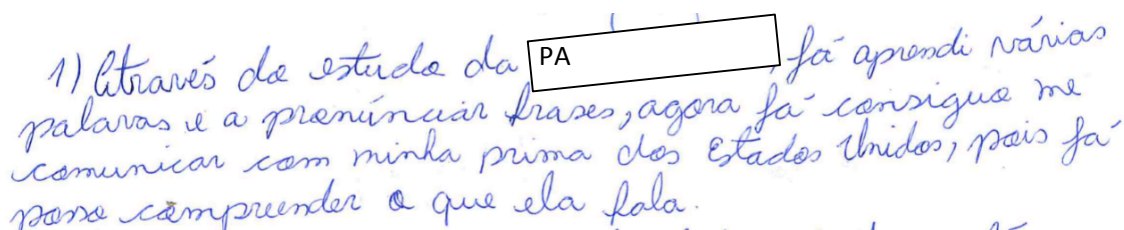 1) Através do estudo da PA, já aprendi várias
palavras e a pronúnciar frases, agora já consiguo me
comunicar com minha prima dos Estados Unidos, pois já
posso compreender o que ela fala.